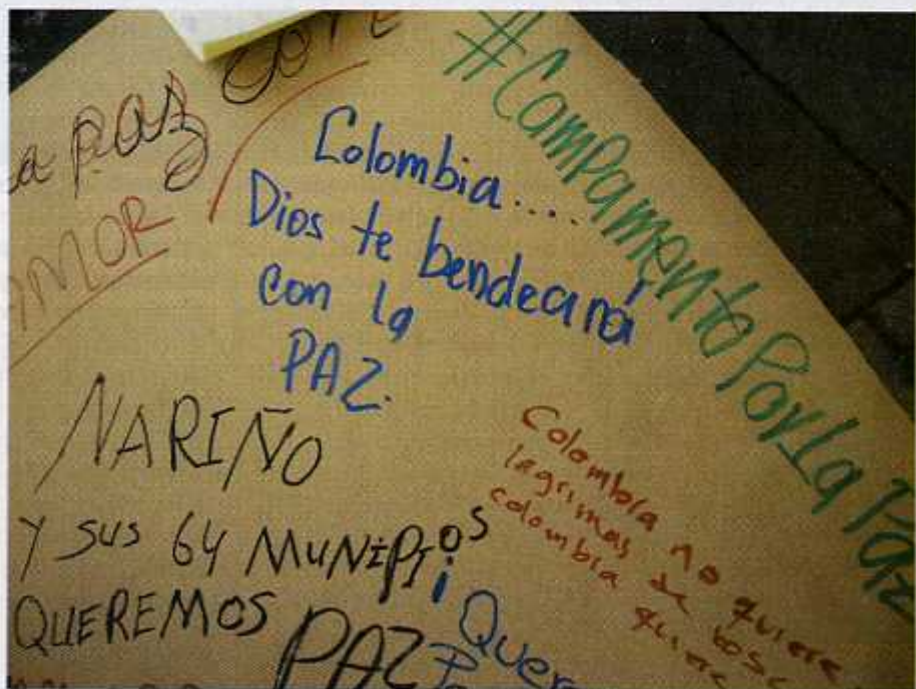 la paz
AMOR
#CamPamentoPorlaPaz
Colombia....
Dios te bendecirá
con la
PAZ.
NARIÑO
Y sus 64 MUNIPIOS
QUEREMOS PAZ
Colombia no quiere
lagrimas de
colombia quiere
¡Quere